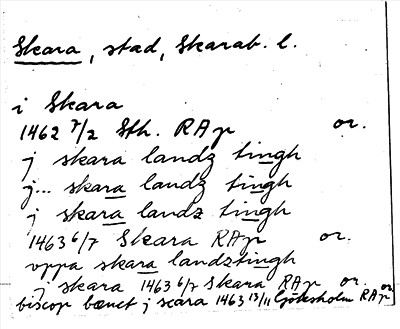 Skara, stad, Skarab. l.
i Skara
1462 7/2 Sth. RAp or.
j skara landz tingh
j... skara landz tingh
j skara landz tingh
1463 6/7 Skara RAp or.
vppa skara landztingh
j skara 1463 6/7 Skara RAp or.
biscop bænct j scara 1463 13/11 Göksholm RAp or